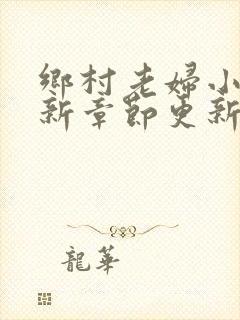 鄉村老婦小
新章節更新
龍華